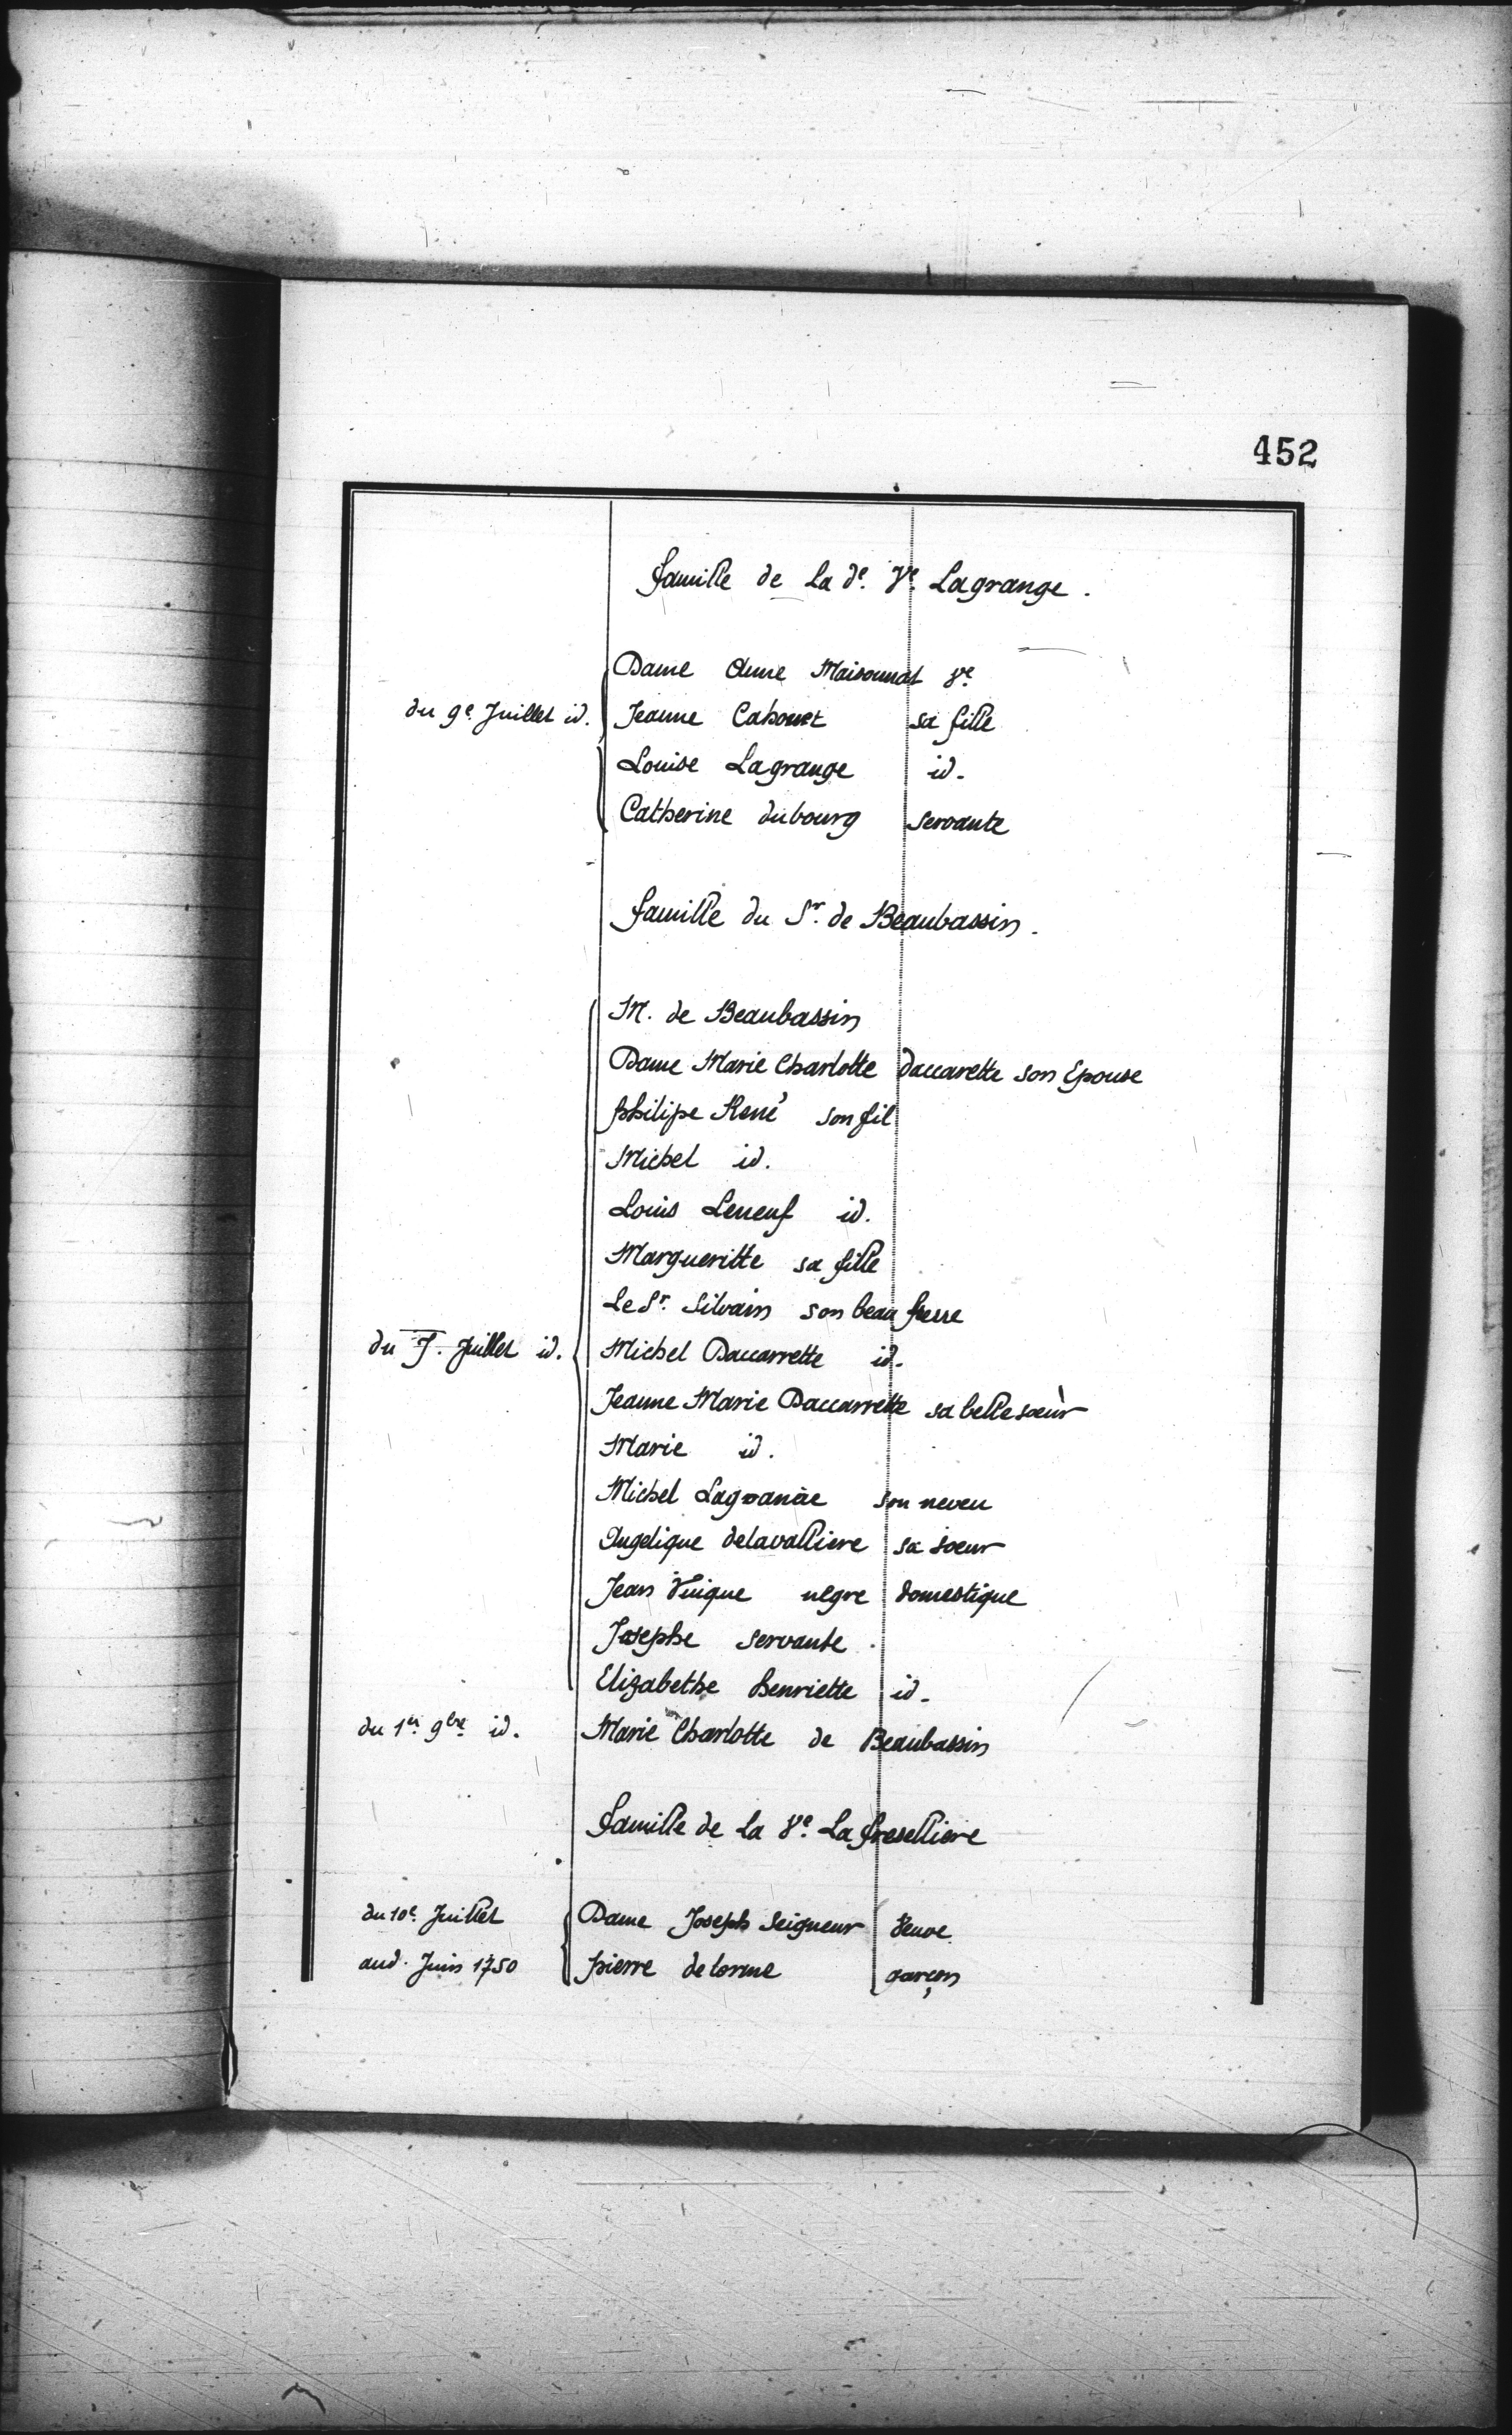 452
famille de La de. Ve. Lagrange.
Dame Anne Maisonnat Ve.
du 9e. Juillet id. Jeanne Cahouet sa fille
Louise Lagrange id.
Catherine dubourg Servante
famille du Sr. de Beaubassin.
M. de Beaubassin
Dame Marie Charlotte Daccarette son Epouse
philipe René son fil
Michel id.
Louis Leneuf id.
Margueritte sa fille
Le Sr. Silvain son beau frere
du J. Juillet id. Michel Daccarrette id.
Jeanne Marie Daccarrette sa belle soeur
Marie id.
Michel son neveu
Angelique delavalliere sa soeur
Jean negre domestique
Josephe servante.
Elizabethe henriette id.
du 1er 9bre id. Marie Charlotte de Beaubassin
famille de La Ve. La freselliere
du 10e. Juillet Dame Joseph Seigneur Veuve
aud. Juin 1750 pierre delorme garçon